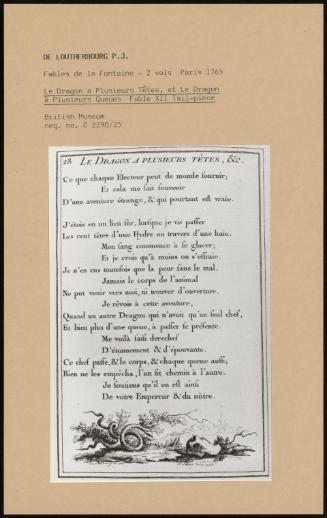 DE LOUTHERBOURG P.J.
Fables de la Fontaine - 2 vols Paris 1765
Le Dragon a Plusieurs Têtes, et Le Dragon
à Plusieurs Queues Fable XII Tail-piece
British Museum
neg. no. C 2290/25
28 LE DRAGON A PLUSIEURS TÊTES, &c.
Ce que chaque Electeur peut de monde fournir;
Et cela me fait souvenir
D'une aventure étrange, & qui pourtant est vraie.
J'étois en un lieu sûr, lorsque je vis passer
Les cent têtes d'une Hydre au travers d'une haie.
Mon sang commence à se glacer;
Et je crois qu'à moins on s'effraie.
Je n'en eus toutefois que la peur sans le mal.
Jamais le corps de l'animal
Ne put venir vers moi, ni trouver d'ouverture.
Je rêvois à cette aventure,
Quand un autre Dragon qui n'avoit qu'un seul chef,
Et bien plus d'une queue, à passer se présente.
Me voilà saisi derechef
D'étonnement & d'épouvante.
Ce chef passe, & le corps, & chaque queue aussi;
Rien ne les empêcha, l'un fit chemin à l'autre.
Je soutiens qu'il en est ainsi
De votre Empereur & du nôtre.